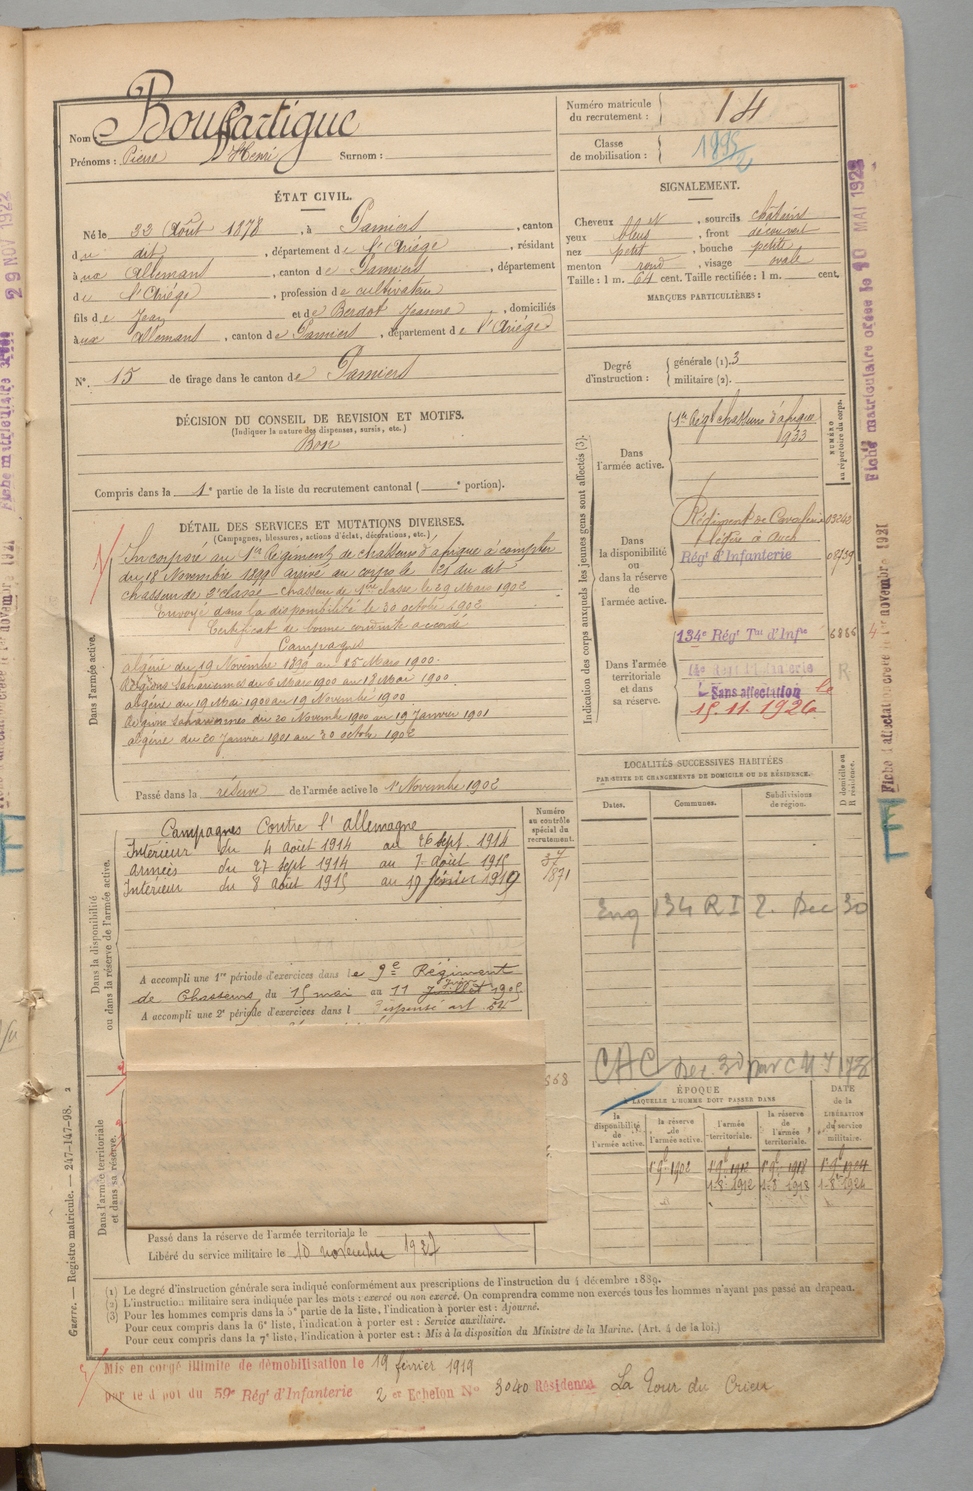 Nom Bouffartigue
Prénoms : Pierre Henri Surnom :
Numéro matricule du recrutement : 14
Classe de mobilisation :
ÉTAT CIVIL.
Né le 22 Août 1878, à Pamiers, canton
du dit, département de l'Ariége, résidant
à ux Allemans, canton de Pamiers, département
de l'Ariége, profession de cultivateur
fils de Jean et de Berdot Jeanne, domiciliés
à ux Allemans, canton de Pamiers, département de l'Ariége
N° 15 de tirage dans le canton de Pamiers
SIGNALEMENT.
Cheveux , sourcils châtains
yeux bleus, front découvert
nez petit, bouche petite
menton rond, visage ovale
Taille : 1 m. 64 cent. Taille rectifiée : 1 m. cent.
MARQUES PARTICULIÈRES :
Degré d'instruction : générale (1). 3
militaire (2).
DÉCISION DU CONSEIL DE REVISION ET MOTIFS.
(Indiquer la nature des dispenses, sursis, etc.)
Bon
Compris dans la 1e partie de la liste du recrutement cantonal ( e portion).
DÉTAIL DES SERVICES ET MUTATIONS DIVERSES.
(Campagnes, blessures, actions d'éclat, décorations, etc.)
Dans l'armée active.
Incorporé au 1er Régiment de chasseurs d'afrique à compter
du 18 Novembre 1899 arrivé au corps le 21 du dit
chasseur de 2e classe chasseur de 1ere classe le 29 Mars 1902
Envoyé dans la disponibilité le 30 octobre 1902
Certificat de bonne conduite accordé
Campagnes
algérie du 19 Novembre au 25 Mars 1900.
Régions sahariennes du 6 Mars 1900 au 18 Mai 1900.
algérie du 19 Mai 1900 au 19 Novembre 1900
Régions sahariennes du 20 Novembre 1900 au 19 Janvier 1901
algérie du 20 Janvier 1901 au 30 octobre 1902
Passé dans la réserve de l'armée active le 1er Novembre 1902
Indication des corps auxquels les jeunes gens sont affectés (3).
NUMÉRO au répertoire du corps.
Dans l'armée active.
1er Régt chasseurs d'afrique
1933
Dans la disponibilité ou dans la réserve de l'armée active.
Régiment de Cavalerie
légère à Auch
Régt d'Infanterie
Dans l'armée territoriale et dans sa réserve.
134e Régt Tal d'Infie 6886
Sans affectation le
15.11.1926
LOCALITÉS SUCCESSIVES HABITÉES
PAR SUITE DE CHANGEMENTS DE DOMICILE OU DE RÉSIDENCE.
Dates. Communes. Subdivisions de région. D domicile ou R résidence.
134 RI
Dans la disponibilité ou dans la réserve de l'armée active.
Numéro au contrôle spécial du recrutement.
Campagnes Contre l'allemagne
Intérieur du 4 août 1914 au 26 sept. 1914
armées du 27 sept 1914 au 7 août 1915
Intérieur du 8 août 1915 au 19 février 1919
A accompli une 1re période d'exercices dans le 9e Régiment
de Chasseurs du 15 mai au 11 juillet juin 1905
A accompli une 2e période d'exercices dans l Dispensé art. 52
568
Dans l'armée territoriale et dans sa réserve.
Passé dans la réserve de l'armée territoriale le
Libéré du service militaire le 10 novembre 1927
ÉPOQUE
À LAQUELLE L'HOMME DOIT PASSER DANS
DATE de la LIBÉRATION du service militaire.
la disponibilité de l'armée active. la réserve de l'armée active. l'armée territoriale. la réserve de l'armée territoriale.
1902 1912 1918 1924
1912 1918 1924
(1) Le degré d'instruction générale sera indiqué conformément aux prescriptions de l'instruction du 4 décembre 1889.
(2) L'instruction militaire sera indiquée par les mots : exercé ou non exercé. On comprendra comme non exercés tous les hommes n'ayant pas passé au drapeau.
(3) Pour les hommes compris dans la 5e partie de la liste, l'indication à porter est : Ajourné.
Pour ceux compris dans la 6e liste, l'indication à porter est : Service auxiliaire.
Pour ceux compris dans la 7e liste, l'indication à porter est : Mis à la disposition du Ministre de la Marine. (Art. 4 de la loi.)
Mis en congé illimité de démobilisation le 19 février 1919
par le dépôt du 59e Régt d'Infanterie 2 er Echelon N° 3040 Résidence La Tour du Crieu
Guerre. — Registre matricule. — 247-147-98. 2
29 NOV 1922
Fiche matriculaire créée le MAI 1922
Fiche d'affectation créée le 1er novembre 1921